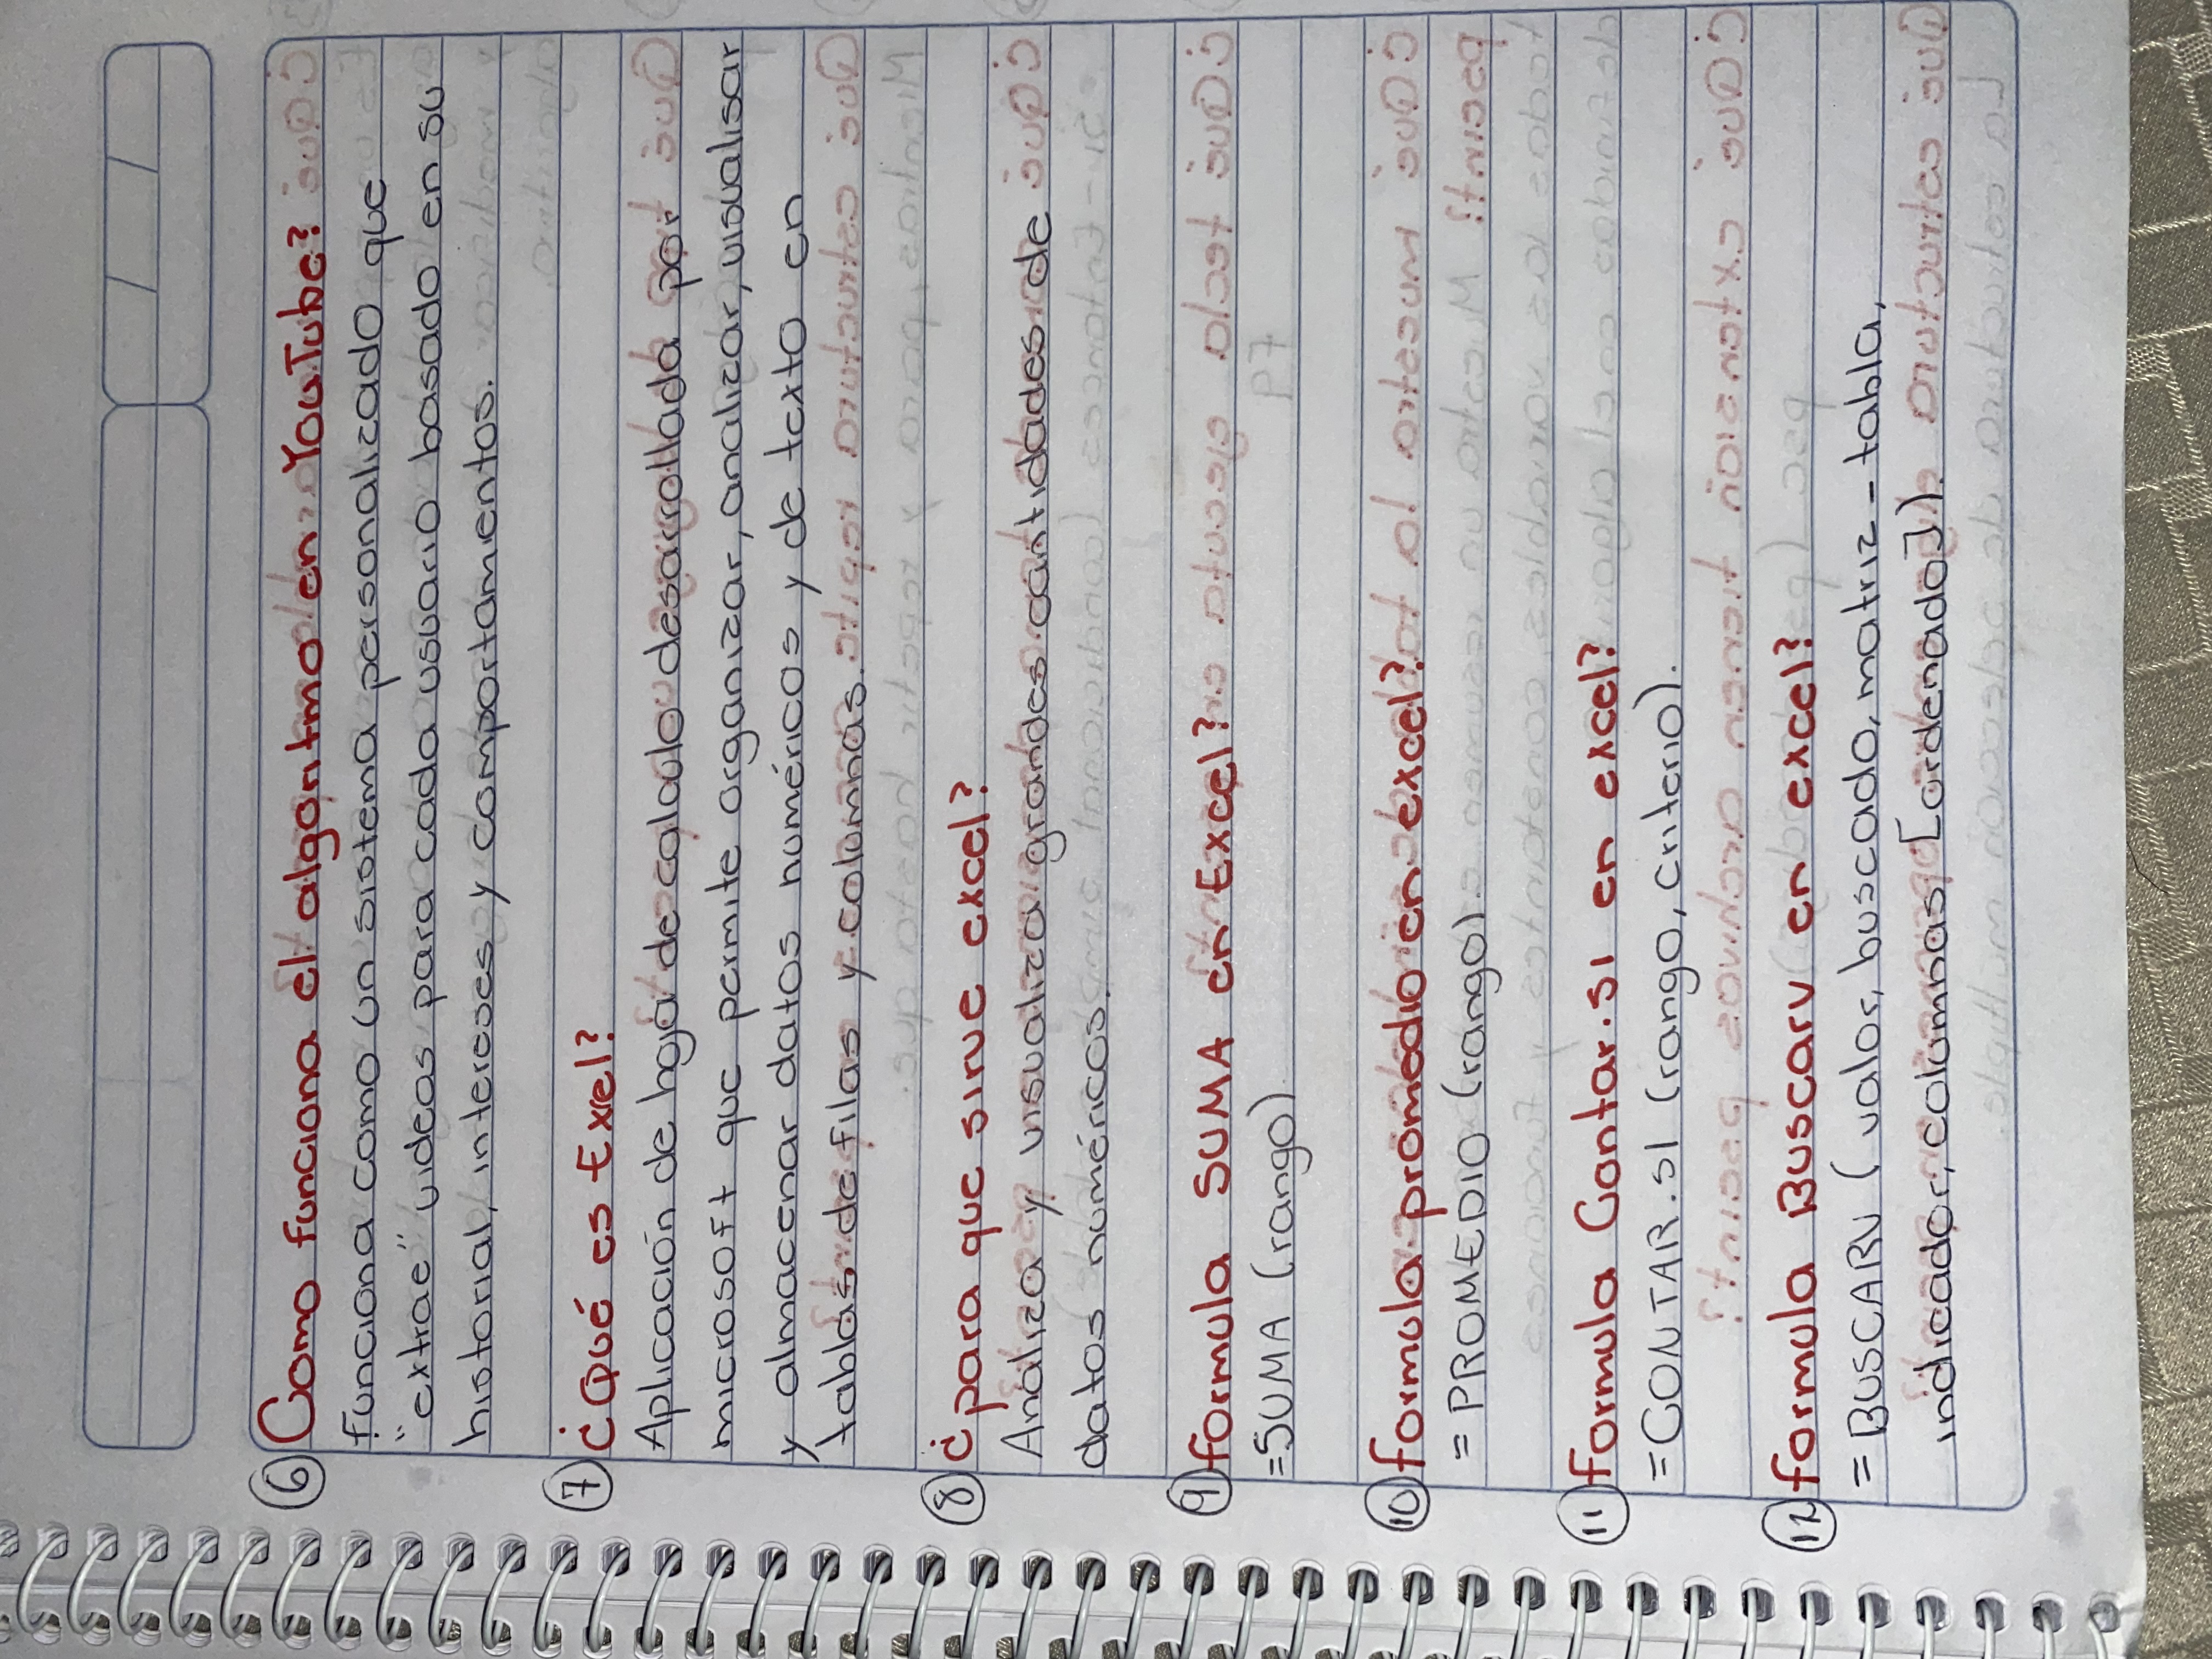 6 Como funciona el algoritmo en YouTube?
funciona como un sistema personalizado que
"extrae" videos para cada usuario basado en su
historial, intereses y comportamientos.
7 ¿Qué es Exel?
Aplicación de hoja de calculo desarrollada por
microsoft que permite organizar, analizar, visualisar
y almacenar datos numéricos y de texto en
tablas de filas y columnas.
8 ¿para que sirve excel?
Analiza y visualiza grandes cantidades de
datos numéricos.
9 formula SUMA en Excel?
=SUMA (rango)
10 formula promedio en excel?
=PROMEDIO (rango).
11 formula Contar.si en excel?
=CONTAR.SI (rango, criterio).
12 formula Buscarv en excel?
=BUSCARV (valor, buscado, matriz-tabla,
indicador, columnas [ordenado]).